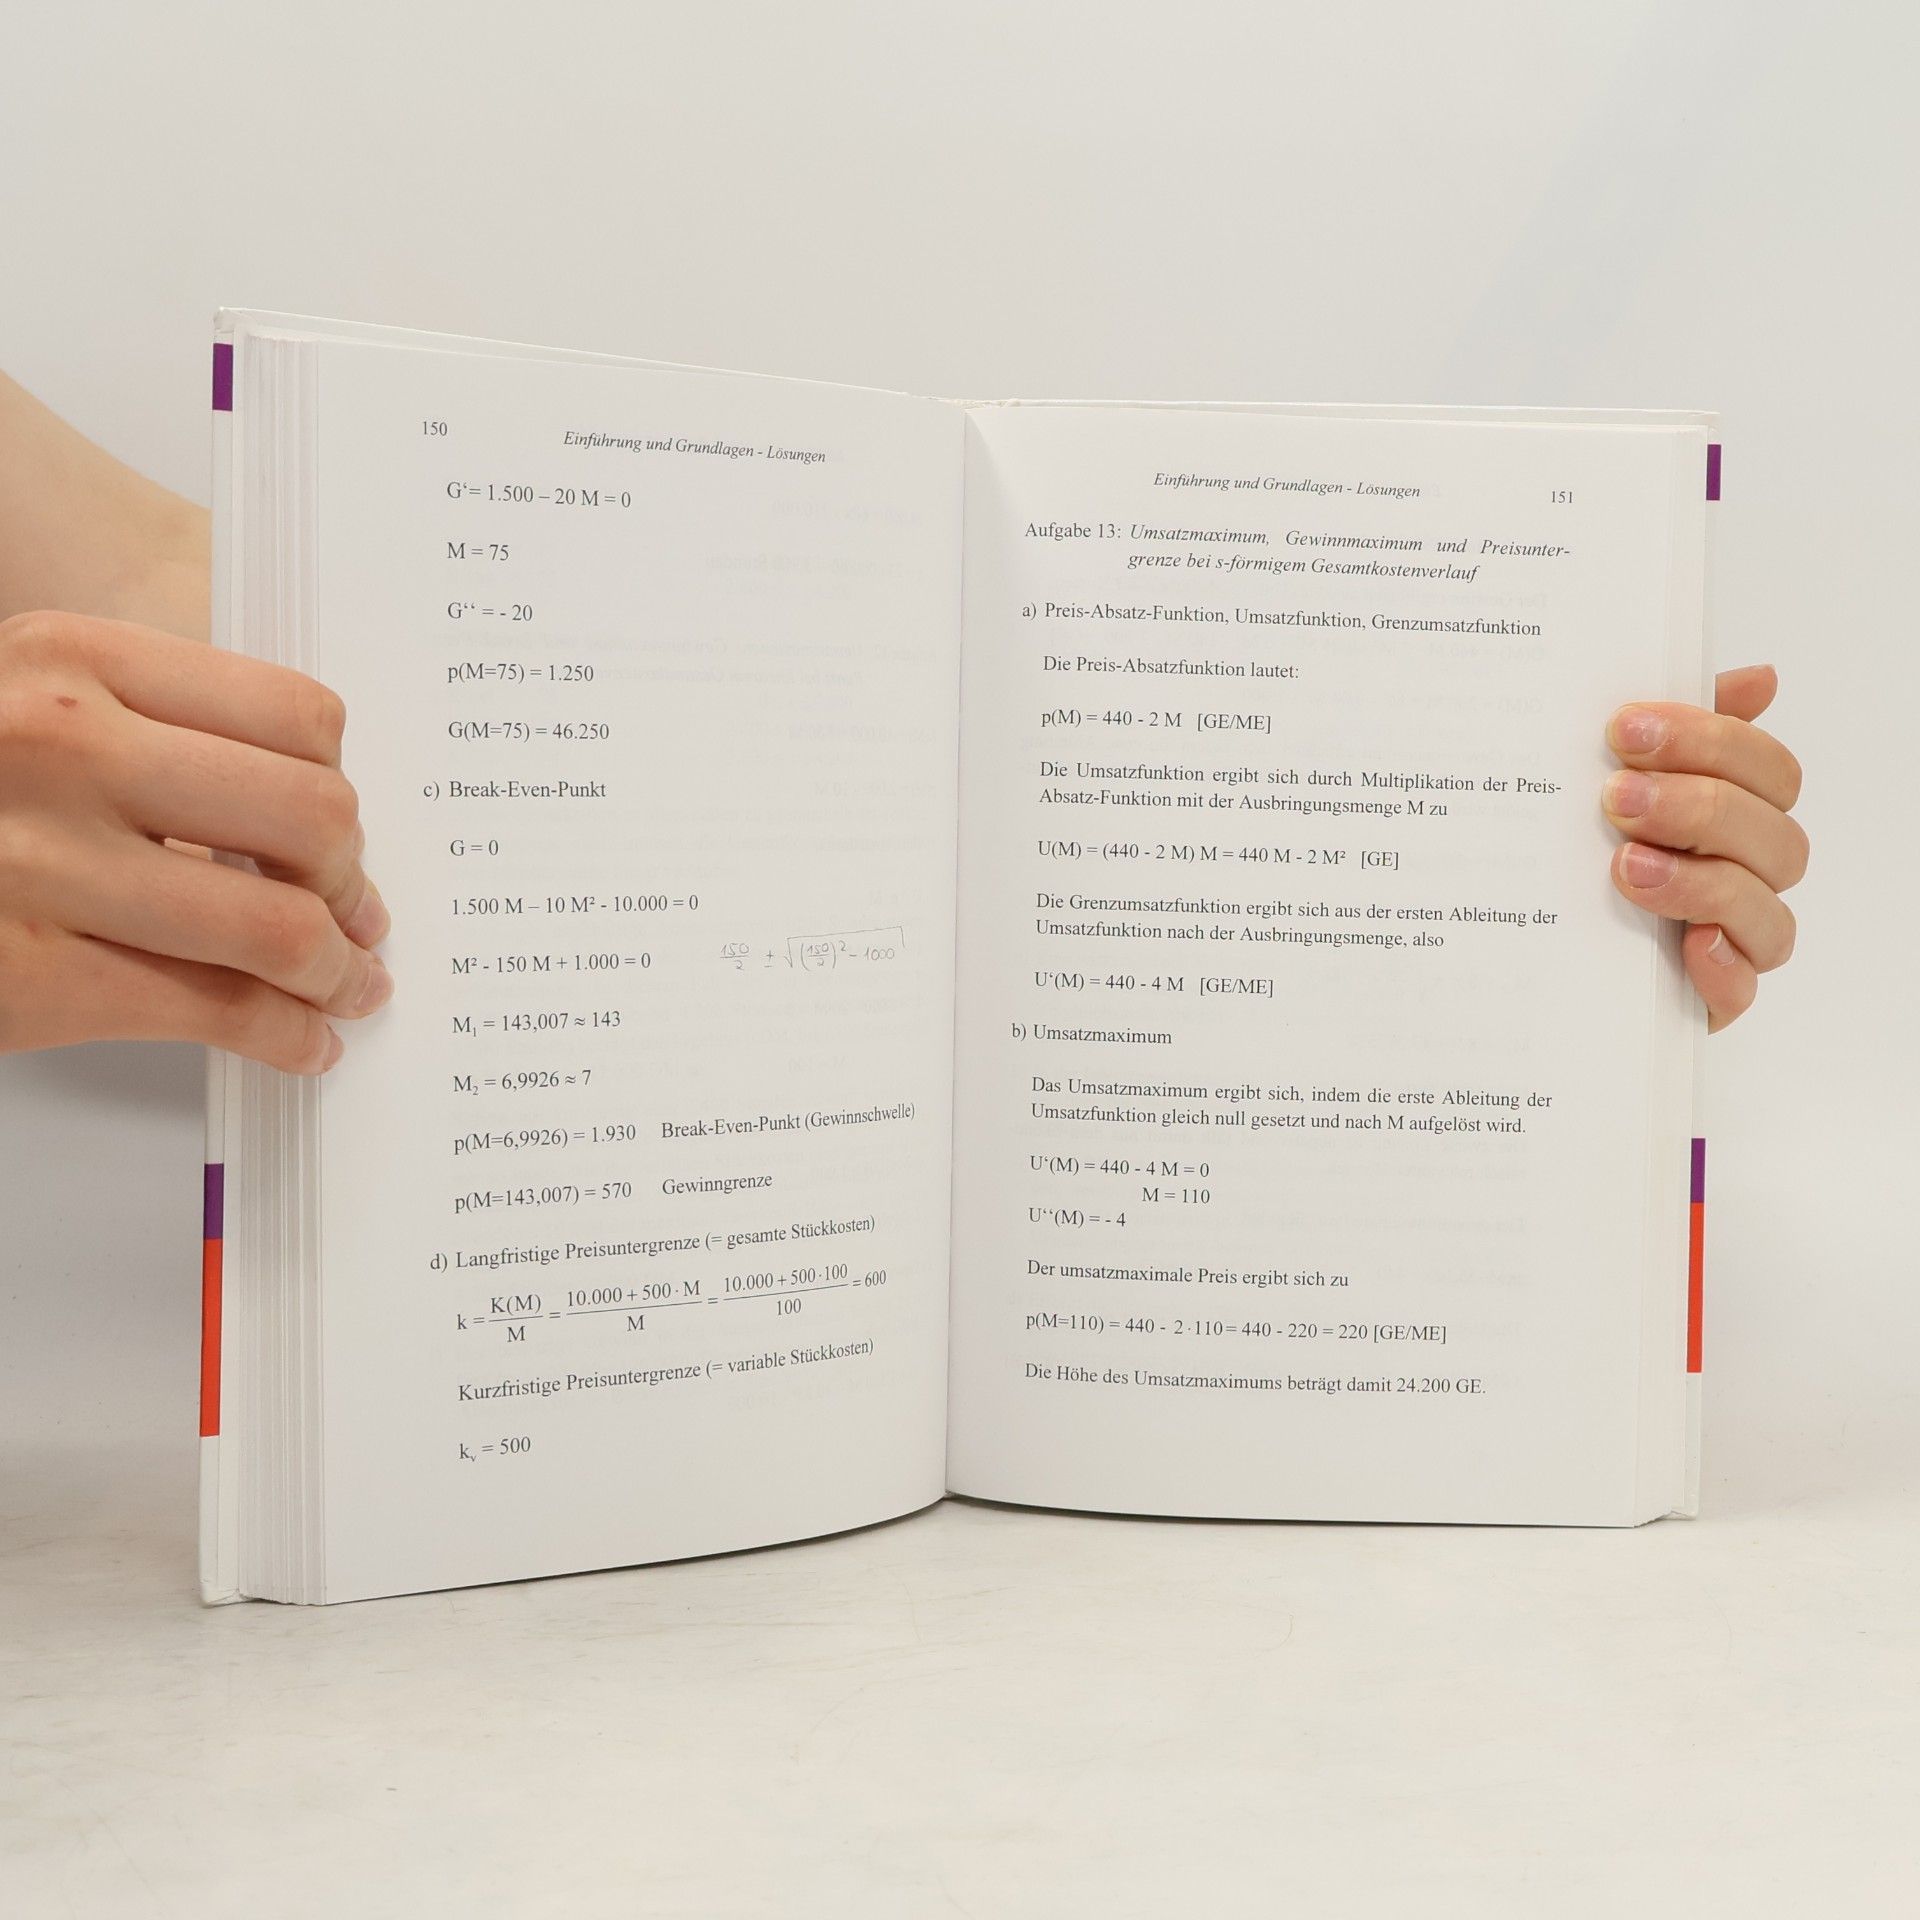 150
Einführung und Grundlagen - Lösungen
G‘= 1.500 – 20 M = 0
M = 75
G‘‘ = - 20
p(M=75) = 1.250
G(M=75) = 46.250
c) Break-Even-Punkt
G = 0
1.500 M – 10 M² - 10.000 = 0
M² - 150 M + 1.000 = 0 150/2 ± √((150/2)² - 1000)
M₁ = 143,007 ≈ 143
M₂ = 6,9926 ≈ 7
p(M=6,9926) = 1.930 Break-Even-Punkt (Gewinnschwelle)
p(M=143,007) = 570 Gewinngrenze
d) Langfristige Preisuntergrenze (= gesamte Stückkosten)
k = K(M)/M = (10.000 + 500 · M)/M = (10.000 + 500 · 100)/100 = 600
Kurzfristige Preisuntergrenze (= variable Stückkosten)
kᵥ = 500
Einführung und Grundlagen - Lösungen
151
Aufgabe 13: Umsatzmaximum, Gewinnmaximum und Preisunter-
grenze bei s-förmigem Gesamtkostenverlauf
a) Preis-Absatz-Funktion, Umsatzfunktion, Grenzumsatzfunktion
Die Preis-Absatzfunktion lautet:
p(M) = 440 - 2 M [GE/ME]
Die Umsatzfunktion ergibt sich durch Multiplikation der Preis-
Absatz-Funktion mit der Ausbringungsmenge M zu
U(M) = (440 - 2 M) M = 440 M - 2 M² [GE]
Die Grenzumsatzfunktion ergibt sich aus der ersten Ableitung der
Umsatzfunktion nach der Ausbringungsmenge, also
U‘(M) = 440 - 4 M [GE/ME]
b) Umsatzmaximum
Das Umsatzmaximum ergibt sich, indem die erste Ableitung der
Umsatzfunktion gleich null gesetzt und nach M aufgelöst wird.
U‘(M) = 440 - 4 M = 0
M = 110
U‘‘(M) = - 4
Der umsatzmaximale Preis ergibt sich zu
p(M=110) = 440 - 2 · 110 = 440 - 220 = 220 [GE/ME]
Die Höhe des Umsatzmaximums beträgt damit 24.200 GE.